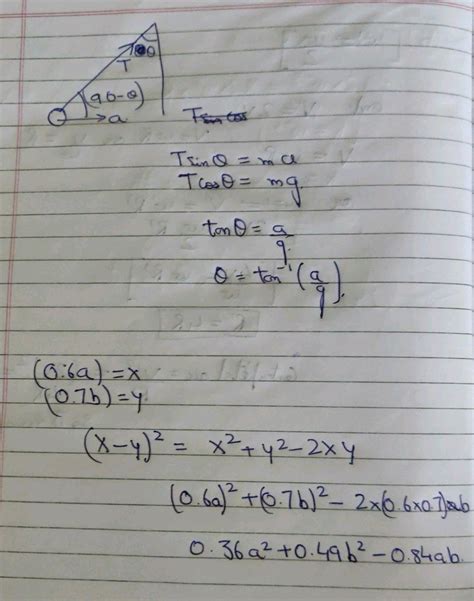 θ
T
(90-θ)
a
T sin cos
T sinθ = ma
T cosθ = mg
tanθ = a/g
θ = tan⁻¹(a/g).
(0.6a) = x
(0.7b) = y
(x-y)² = x² + y² - 2xy
(0.6a)² + (0.7b)² - 2x(0.6x0.7)ab
0.36a² + 0.49b² - 0.84ab